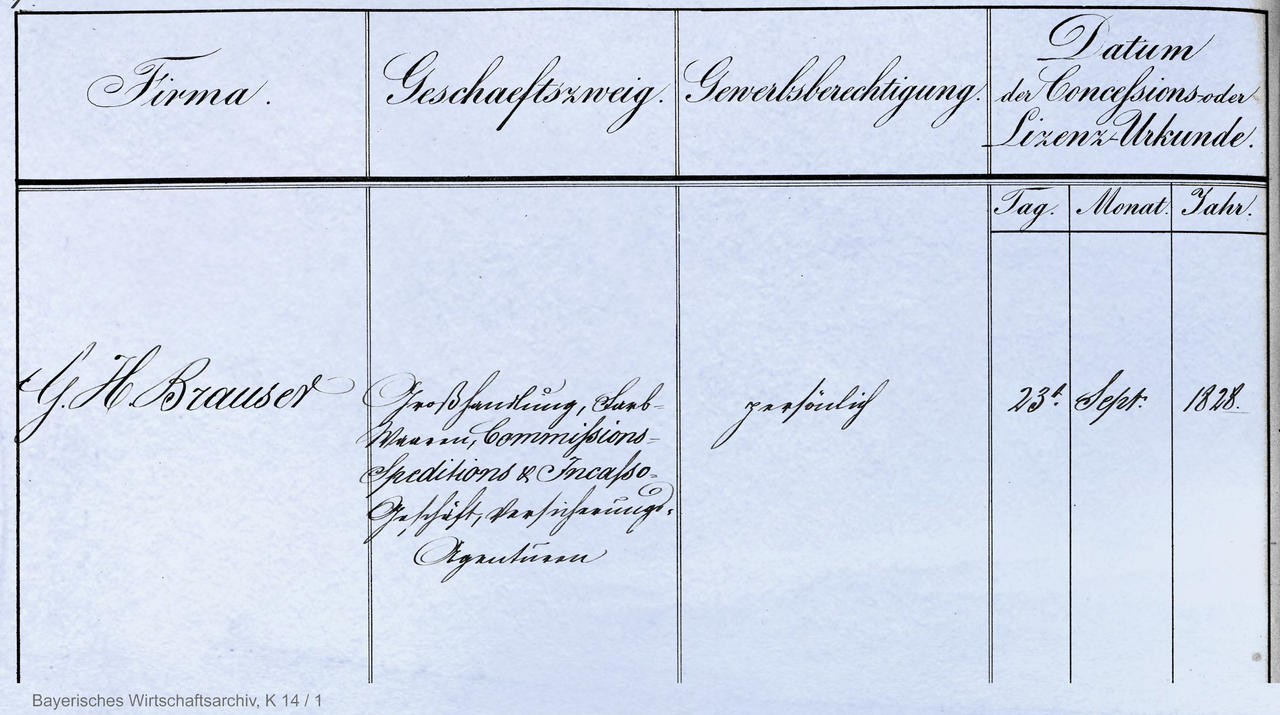 Firma.
Geschaeftszweig.
Gewerbsberechtigung.
Datum
der Concessions-oder
Lizenz-Urkunde.
Tag.
Monat.
Jahr.
G. H. Brauser
Großhandlung, Farb-
Waaren, Commissions-
Speditions & Incasso-
Geschäft, Versicherungs-
Agenturen
persönlich
23t.
Sept.
1828.
Bayerisches Wirtschaftsarchiv, K 14 / 1